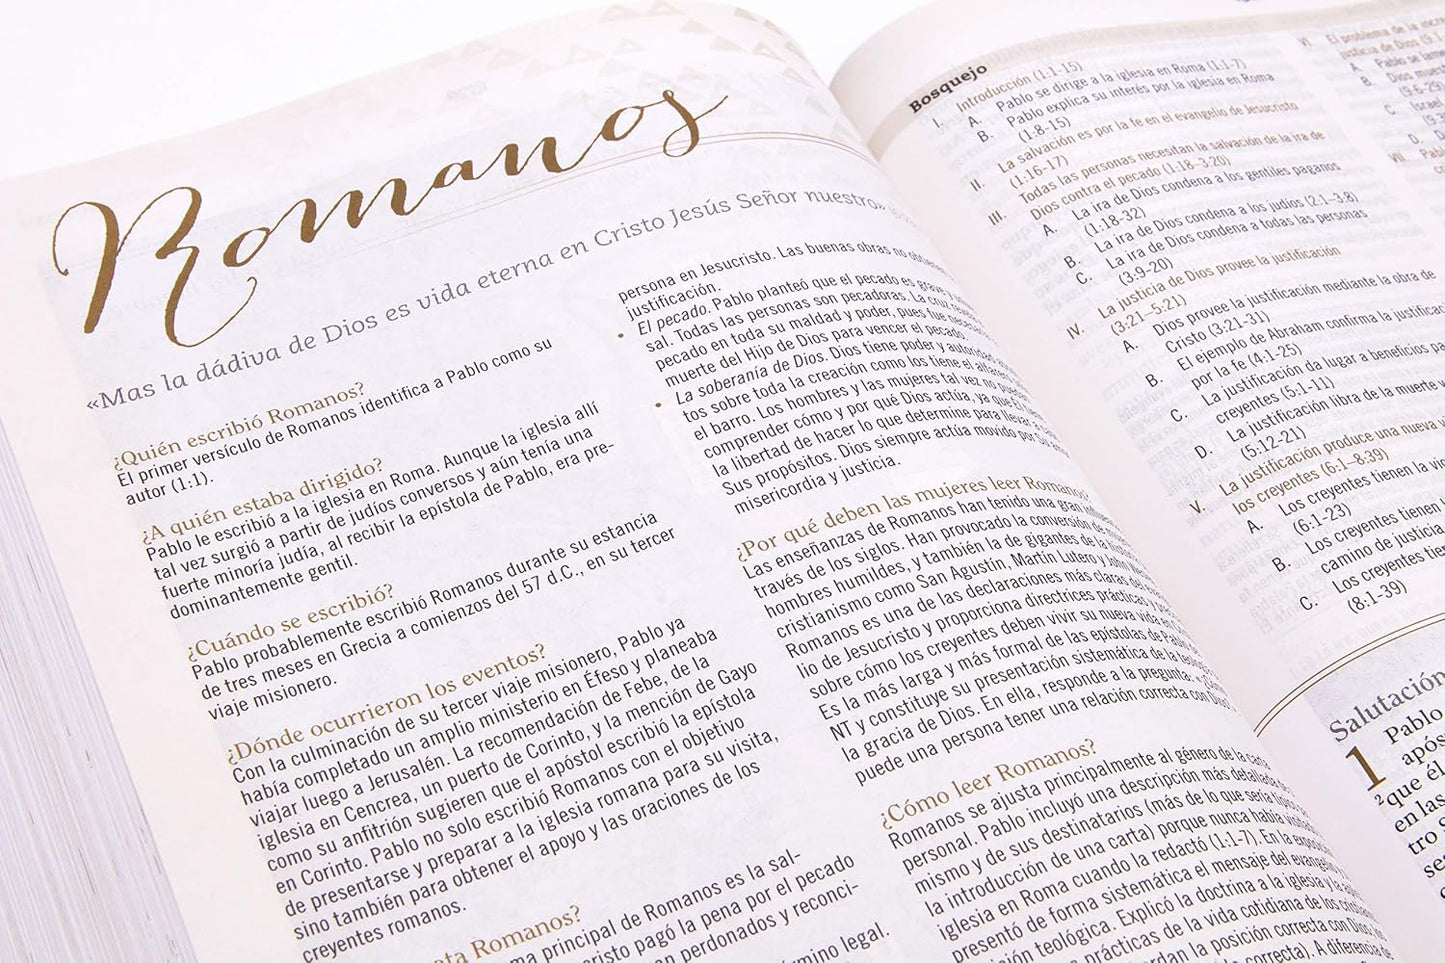 Romanos
«Mas la dádiva de Dios es vida eterna en Cristo Jesús Señor nuestro»
¿Quién escribió Romanos?
El primer versículo de Romanos identifica a Pablo como su
autor (1:1).
¿A quién estaba dirigido?
Pablo le escribió a la iglesia en Roma. Aunque la iglesia allí
tal vez surgió a partir de judíos conversos y aún tenía una
fuerte minoría judía, al recibir la epístola de Pablo, era pre-
dominantemente gentil.
¿Cuándo se escribió?
Pablo probablemente escribió Romanos durante su estancia
de tres meses en Grecia a comienzos del 57 d.C., en su tercer
viaje misionero.
¿Dónde ocurrieron los eventos?
Con la culminación de su tercer viaje misionero, Pablo ya
había completado un amplio ministerio en Éfeso y planeaba
viajar luego a Jerusalén. La recomendación de Febe, de la
iglesia en Cencrea, un puerto de Corinto, y la mención de Gayo
como su anfitrión sugieren que el apóstol escribió la epístola
en Corinto. Pablo no solo escribió Romanos con el objetivo
de presentarse y preparar a la iglesia romana para su visita,
sino también para obtener el apoyo y las oraciones de los
creyentes romanos.
Romanos?
principal de Romanos es la sal-
pagó la pena por el pecado
perdonados y reconci-
término legal.
persona en Jesucristo. Las buenas obras no
justificación.
• El pecado. Pablo planteó que el pecado es grave
sal. Todas las personas son pecadoras. La cruz
pecado en toda su maldad y poder, pues fue
muerte del Hijo de Dios para vencer el pecado.
• La soberanía de Dios. Dios tiene poder y autoridad
tos sobre toda la creación como los tiene el alfarero
el barro. Los hombres y las mujeres tal vez no
comprender cómo y por qué Dios actúa, ya que
la libertad de hacer lo que determine para llevar a
Sus propósitos. Dios siempre actúa movido por Su
misericordia y justicia.
¿Por qué deben las mujeres leer Romanos?
Las enseñanzas de Romanos han tenido una gran
través de los siglos. Han provocado la conversión de
hombres humildes, y también la de gigantes de la
cristianismo como San Agustín, Martín Lutero y John
Romanos es una de las declaraciones más claras del
lio de Jesucristo y proporciona directrices prácticas y
sobre cómo los creyentes deben vivir su nueva vida en
Es la más larga y más formal de las epístolas de Pablo
NT y constituye su presentación sistemática de la
la gracia de Dios. En ella, responde a la pregunta:
puede una persona tener una relación correcta con
¿Cómo leer Romanos?
Romanos se ajusta principalmente al género de la carta
personal. Pablo incluyó una descripción más detallada
mismo y de sus destinatarios (más de lo que sería
la introducción de una carta) porque nunca había
iglesia en Roma cuando la redactó (1:1-7). En la
presentó de forma sistemática el mensaje del
teológica. Explicó la doctrina a la iglesia y la
prácticas de la vida cotidiana de los
la posición correcta con Dios
correcta). A diferencia de
Bosquejo
I. Introducción (1:1-15)
A. Pablo se dirige a la iglesia en Roma (1:1-7)
B. Pablo explica su interés por la iglesia en Roma
(1:8-15)
II. La salvación es por la fe en el evangelio de Jesucristo
(1:16-17)
III. Todas las personas necesitan la salvación de la ira de
Dios contra el pecado (1:18–3:20)
A. La ira de Dios condena a los gentiles paganos
(1:18-32)
B. La ira de Dios condena a los judíos (2:1–3:8)
C. La ira de Dios condena a todas las personas
(3:9-20)
IV. La justicia de Dios provee la justificación
(3:21–5:21)
A. Dios provee la justificación mediante la obra de
Cristo (3:21-31)
B. El ejemplo de Abraham confirma la
por la fe (4:1-25)
C. La justificación da lugar a beneficios
creyentes (5:1-11)
D. La justificación libra de la muerte
(5:12-21)
V. La justificación produce una nueva
los creyentes (6:1–8:39)
A. Los creyentes tienen la
(6:1-23)
B. Los creyentes tienen
camino de justicia
C. Los creyentes
(8:1-39)
VI. El problema de la
justicia de Dios
A. Pablo se
B. Dios
C. Israel
D.
VII.
Salutación
1 Pablo
que él